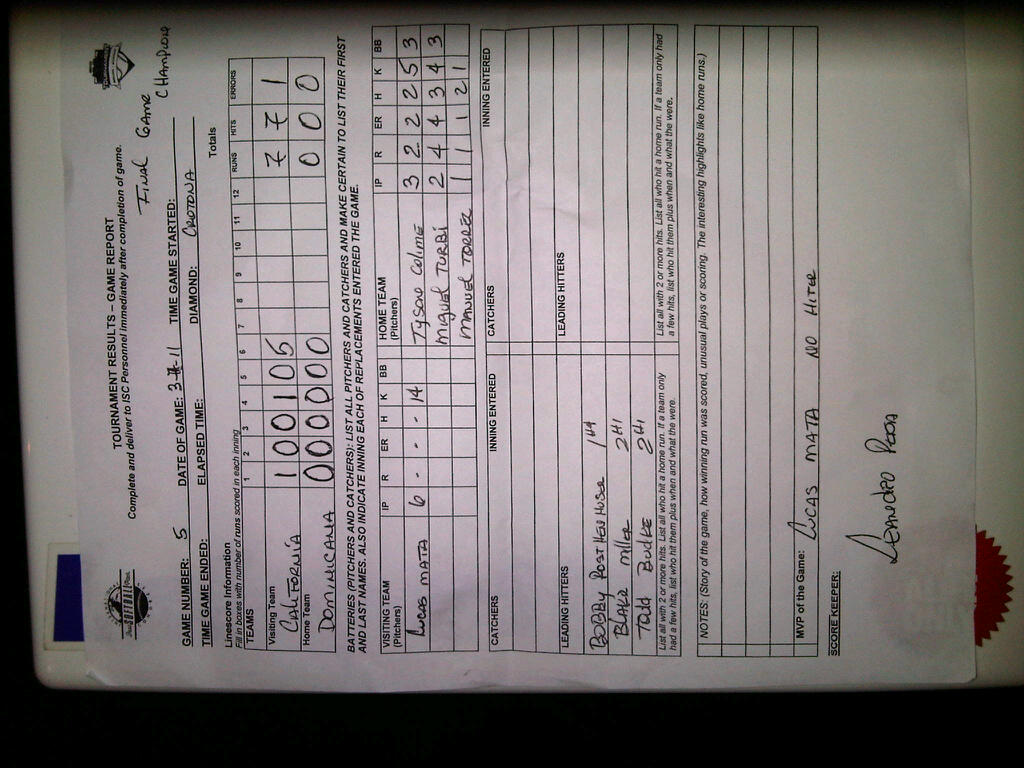 TOURNAMENT RESULTS – GAME REPORT
Complete and deliver to ISC Personnel immediately after completion of game.
FINAL GAME
CHAMPIONS
GAME NUMBER: 5 DATE OF GAME: 3-11 TIME GAME STARTED:
TIME GAME ENDED: ELAPSED TIME: DIAMOND: CROTONA
Linescore Information
Fill in boxes with number of runs scored in each inning
Totals
TEAMS 1 2 3 4 5 6 7 8 9 10 11 12 RUNS HITS ERRORS
Visiting Team
CALIFORNIA 1 0 0 1 0 5 7 7 1
Home Team
DOMINICANA 0 0 0 0 0 0 0 0 0
BATTERIES (PITCHERS AND CATCHERS): LIST ALL PITCHERS AND CATCHERS AND MAKE CERTAIN TO LIST THEIR FIRST
AND LAST NAMES. ALSO INDICATE INNING EACH OF REPLACEMENTS ENTERED THE GAME.
VISITING TEAM IP R ER H K BB HOME TEAM IP R ER H K BB
(Pitchers) (Pitchers)
LUCAS MATA 6 - - - 14 TYSONE COLIME 3 2 2 2 5 3
MIGUEL TURBI 2 4 4 3 4 3
MANUEL TORREZ 1 1 1 2 1
CATCHERS INNING ENTERED CATCHERS INNING ENTERED
LEADING HITTERS LEADING HITTERS
BOBBY 1H
BLAKE MILLER 2HI
TODD BUDKE 2HI
List all with 2 or more hits. List all who hit a home run. If a team only had a few hits, list who hit them plus when and what the were.
List all with 2 or more hits. List all who hit a home run. If a team only had a few hits, list who hit them plus when and what the were.
NOTES: (Story of the game, how winning run was scored, unusual plays or scoring. The interesting highlights like home runs.)
MVP of the Game: LUCAS MATA NO HITER
SCORE KEEPER:
LEANDRO